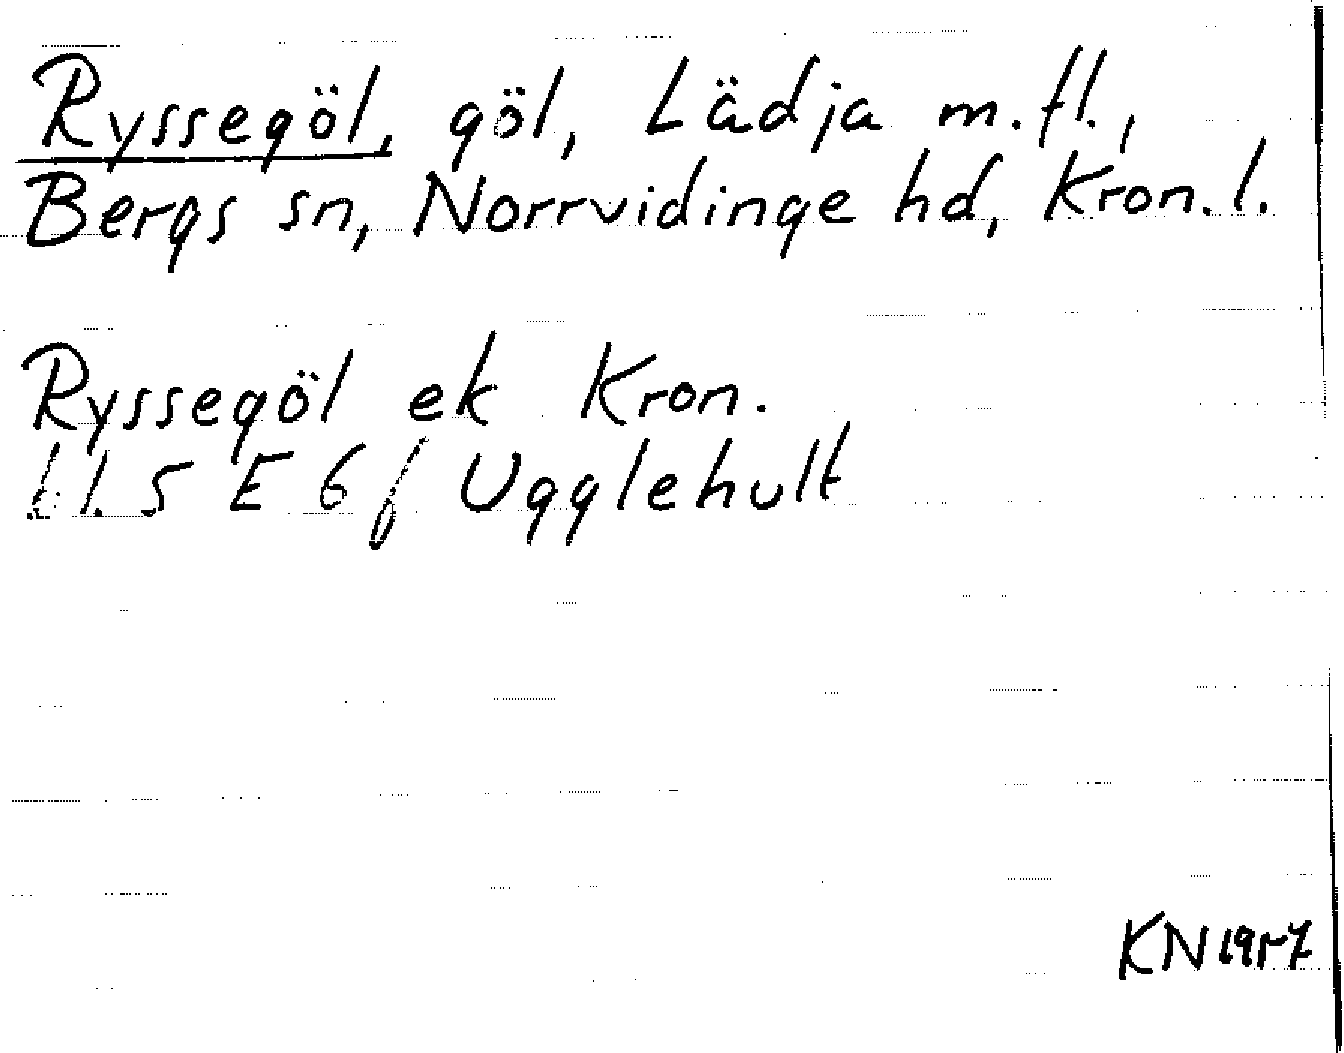 Ryssegöl, göl, Lädja m.fl.,
Bergs sn, Norrvidinge hd, Kron.l.
Ryssegöl ek Kron.
bl. 5 E 6 f Ugglehult
KN 1957